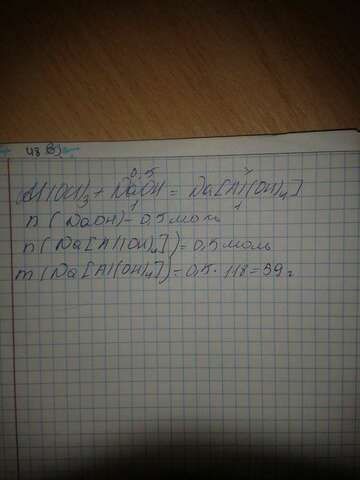 0,5
Al(OH)3 + NaOH = Na[Al(OH)4]
1 1
n(NaOH) = 0,5 моль
n(Na[Al(OH)4]) = 0,5 моль
m(Na[Al(OH)4]) = 0,5 · 118 = 59 г